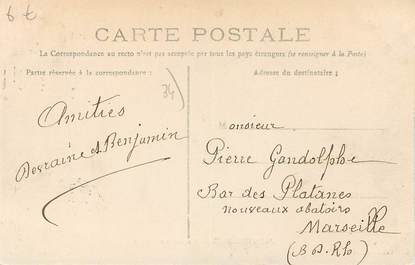 9 €
CARTE POSTALE
La Correspondance au recto n'est pas acceptée par tous les pays étrangers (se renseigner à la Poste)
Partie réservée à la correspondance :
Adresse du destinataire :
34
Amitiés
et Benjamin
Monsieur
Pierre Gandolphe
Bar des Platanes
nouveaux abatoirs
Marseille
(B. D. Rh)